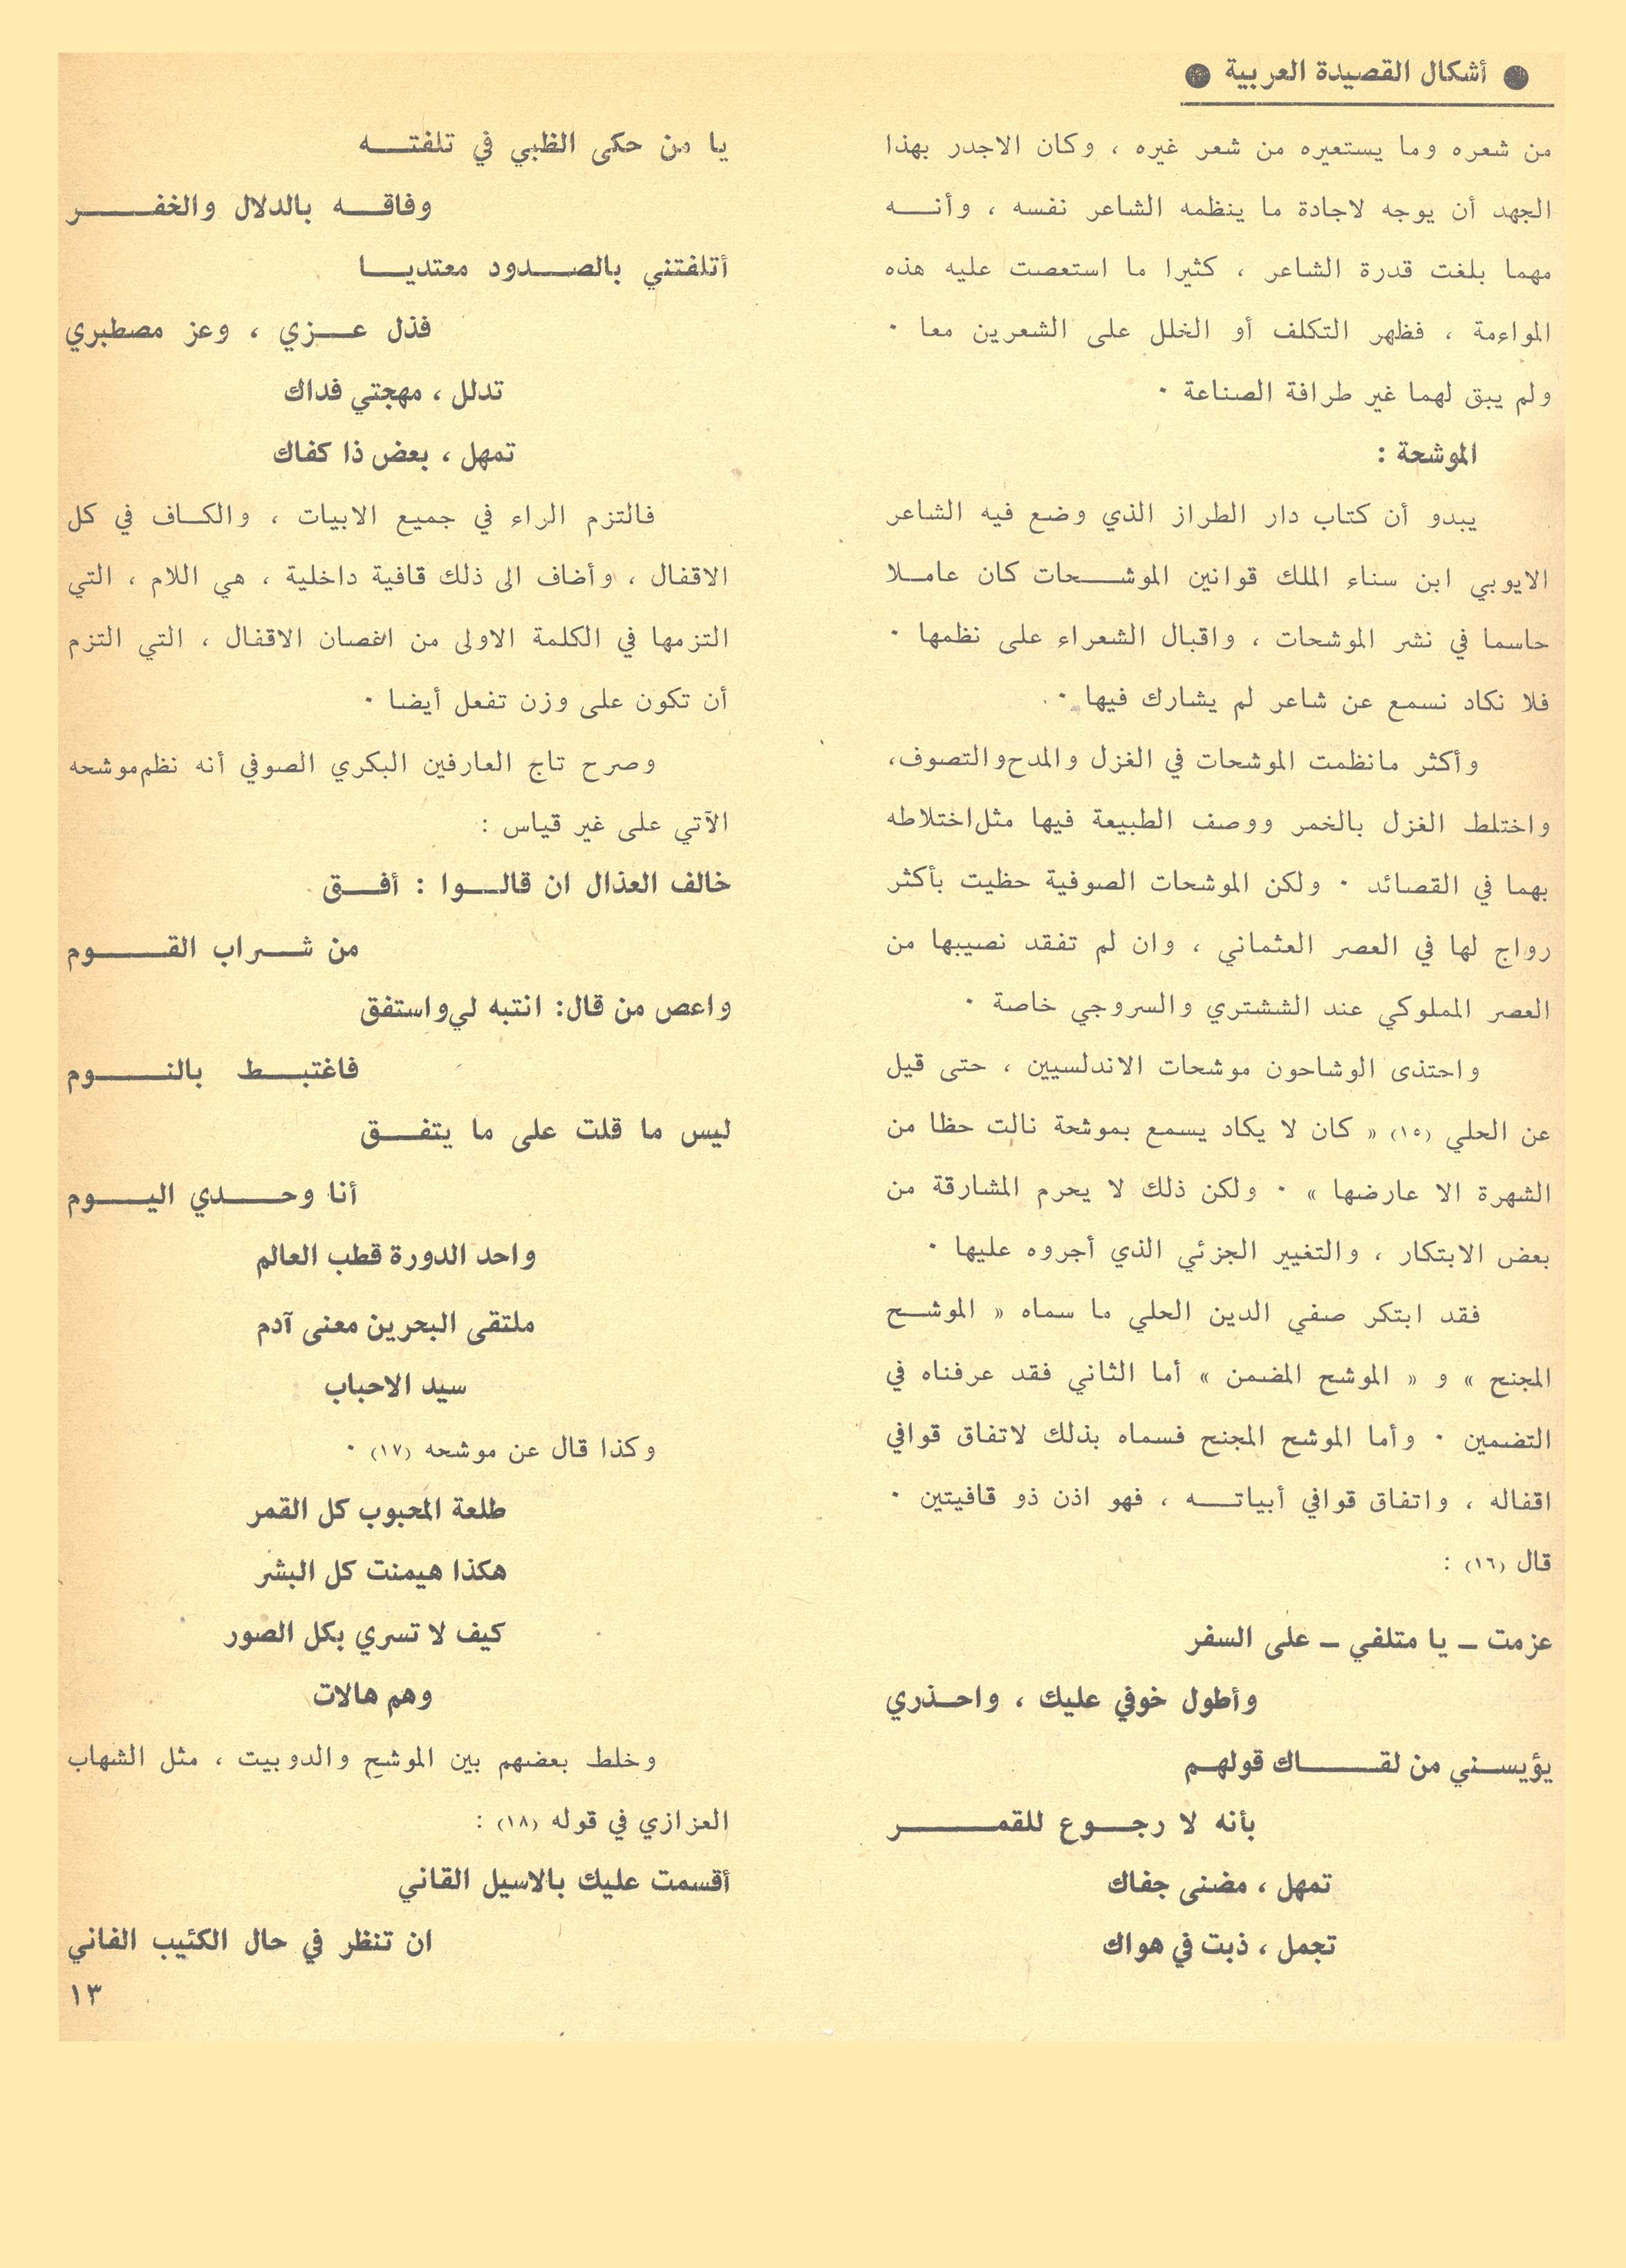 ● أشكال القصيدة العربية ●
من شعره وما يستعيره من شعر غيره ، وكان الاجدر بهذا
الجهد أن يوجه لاجادة ما ينظمه الشاعر نفسه ، وأنه
مهما بلغت قدرة الشاعر ، كثيرا ما استعصت عليه هذه
المواءمة ، فظهر التكلف أو الخلل على الشعرين معا ٠
ولم يبق لهما غير طرافة الصناعة ٠
الموشحة :
يبدو أن كتاب دار الطراز الذي وضع فيه الشاعر
الايوبي ابن سناء الملك قوانين الموشحات كان عاملا
حاسما في نشر الموشحات ، واقبال الشعراء على نظمها ٠
فلا نكاد نسمع عن شاعر لم يشارك فيها ٠
وأكثر مانظمت الموشحات في الغزل والمدح والتصوف،
واختلط الغزل بالخمر ووصف الطبيعة فيها مثل اختلاطه
بهما في القصائد ٠ ولكن الموشحات الصوفية حظيت بأكثر
رواج لها في العصر العثماني ، وان لم تفقد نصيبها من
العصر المملوكي عند الششتري والسروجي خاصة ٠
واحتذى الوشاحون موشحات الاندلسيين ، حتى قيل
عن الحلي (١٥) « كان لا يكاد يسمع بموشحة نالت حظا من
الشهرة الا عارضها » ٠ ولكن ذلك لا يحرم المشارقة من
بعض الابتكار ، والتغيير الجزئي الذي أجروه عليها ٠
فقد ابتكر صفي الدين الحلي ما سماه « الموشح
المجنح » و « الموشح المضمن » أما الثاني فقد عرفناه في
التضمين ٠ وأما الموشح المجنح فسماه بذلك لاتفاق قوافي
اقفاله ، واتفاق قوافي أبياته ، فهو اذن ذو قافيتين ٠
قال (١٦) :
عزمت ـ يا متلفي ـ على السفر
وأطول خوفي عليك ، واحذري
يؤيسني من لقاك قولهم
بأنه لا رجوع للقمر
تمهل ، مضنى جفاك
تجمل ، ذبت في هواك
يا من حكى الظبي في تلفته
وفاقه بالدلال والخفر
أتلفتني بالصدود معتديا
فذل عزي ، وعز مصطبري
تدلل ، مهجتي فداك
تمهل ، بعض ذا كفاك
فالتزم الراء في جميع الابيات ، والكاف في كل
الاقفال ، وأضاف الى ذلك قافية داخلية ، هي اللام ، التي
التزمها في الكلمة الاولى من اغصان الاقفال ، التي التزم
أن تكون على وزن تفعل أيضا ٠
وصرح تاج العارفين البكري الصوفي أنه نظم موشحه
الآتي على غير قياس :
خالف العذال ان قالوا : أفق
من شراب القوم
واعص من قال: انتبه لي واستفق
فاغتبط بالنوم
ليس ما قلت على ما يتفق
أنا وحدي اليوم
واحد الدورة قطب العالم
ملتقى البحرين معنى آدم
سيد الاحباب
وكذا قال عن موشحه (١٧) ٠
طلعة المحبوب كل القمر
هكذا هيمنت كل البشر
كيف لا تسري بكل الصور
وهم هالات
وخلط بعضهم بين الموشح والدوبيت ، مثل الشهاب
العزازي في قوله (١٨) :
أقسمت عليك بالاسيل القاني
ان تنظر في حال الكئيب الفاني
١٣